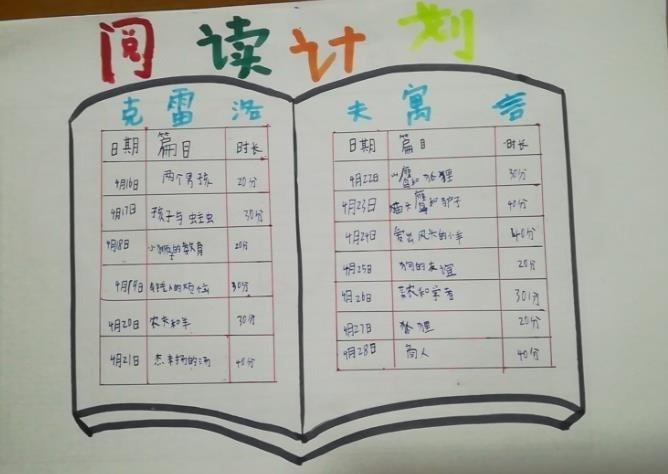 阅读计划
克雷洛夫寓言
日期 篇目 时长
4月16日 两个男孩 20分
4月17日 孩子与蛀虫 30分
4月18日 小狮的教育 20分
4月19日 30分
4月20日 农夫和羊 30分
4月21日 杰米扬的汤 40分
日期 篇目 时长
4月22日 山鹰和狐狸 30分
4月23日 猫头鹰和驴子 40分
4月24日 40分
4月25日 狗的友谊 20分
4月26日 30分
4月27日 狐狸 20分
4月28日 商人 40分